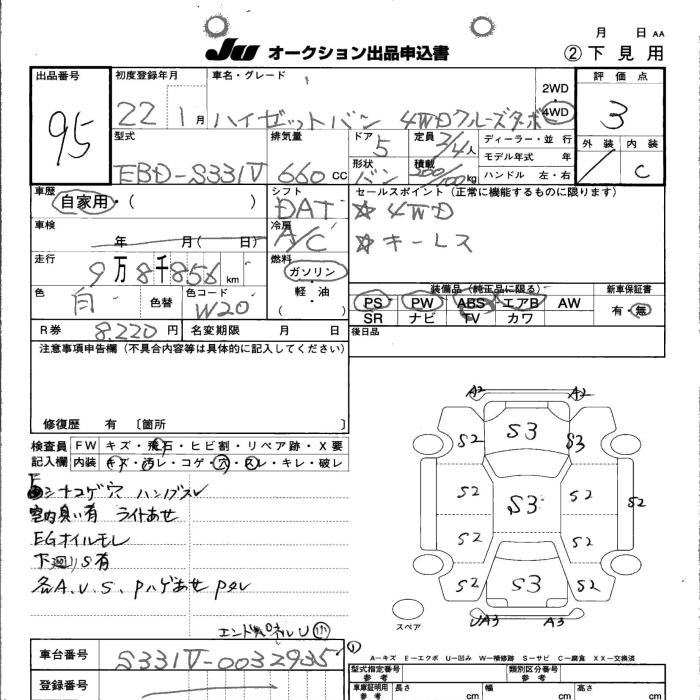 月 日 AA
JU オークション出品申込書 ②下見用
出品番号 初度登録年月 車名・グレード 2WD 4WD 評価点
95 22 1月 ハイゼットバン 4WDクルーズターボ 3
型式 排気量 ドア 定員 ディーラー・並行 外装 内装
EBD-S331V 660 CC 5 2/4人 モデル年式 年
形状 積載 ハンドル 左・右 C
バン kg
車歴 シフト セールスポイント(正常に機能するものに限ります)
自家用・( ) DAT ☆4WD
車検 冷房 ☆キーレス
年 月( 日) A/C
走行 燃料
9万8千856km ガソリン・軽油 ( )
装備品(純正品に限る) 新車保証書
色 色替 色コード PS PW ABS エアB AW 有・無
白 W20 SR ナビ TV カワ
R券 8.220円 名変期限 月 日 後日品
注意事項申告欄(不具合内容等は具体的に記入してください)
修復歴 有 〔箇所 〕
検査員 FW キズ・飛石・ヒビ割・リペア跡・X要
記入欄 内装 キズ・汚レ・コゲ・穴・スレ・キレ・破レ
シートコゲ穴 ハンドルスレ
室内臭い有 ライトあせ
EGオイルモレ
下廻りS有
各A.U.S.Pハゲあせ
エンドパネルU
A2 A2
S2 S3 S3
S2 S3 S2 S2
S2 S2
S2 S3 S2
UA3 A3
スペア
車台番号 S331V-0032935
登録番号
A−キズ E−エクボ U−凹み W−補修跡 S−サビ C−腐食 XX−交換済
型式指定番号 参考 類別区分番号 参考
車庫証明用 参考 長さ cm 幅 cm 高さ cm